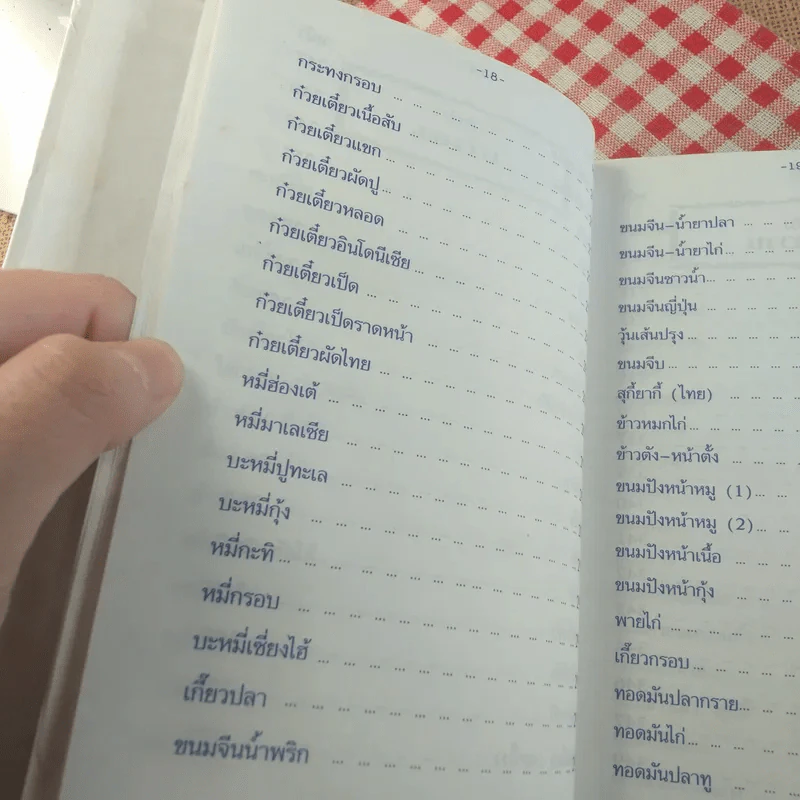 -18-
กระทงกรอบ ... ... ... ... ... ...
ก๋วยเตี๋ยวเนื้อสับ ... ... ... ... ...
ก๋วยเตี๋ยวแขก ... ... ... ... ... ...
ก๋วยเตี๋ยวผัดปู ... ... ... ... ... ...
ก๋วยเตี๋ยวหลอด ... ... ... ... ... ...
ก๋วยเตี๋ยวอินโดนีเซีย ... ... ... ... ...
ก๋วยเตี๋ยวเป็ด ... ... ... ... ... ...
ก๋วยเตี๋ยวเป็ดราดหน้า ... ... ... ... ...
ก๋วยเตี๋ยวผัดไทย ... ... ... ... ... ...
หมี่ฮ่องเต้ ... ... ... ... ... ... ...
หมี่มาเลเซีย ... ... ... ... ... ... ...
บะหมี่ปูทะเล ... ... ... ... ... ... ...
บะหมี่กุ้ง ... ... ... ... ... ... ...
หมี่กะทิ ... ... ... ... ... ... ... ...
หมี่กรอบ ... ... ... ... ... ... ... ...
บะหมี่เซี่ยงไฮ้ ... ... ... ... ... ... ...
เกี๊ยวปลา ... ... ... ... ... ... ... ...
ขนมจีนน้ำพริก ... ... ... ... ... ... ...
ขนมจีน-น้ำยาปลา ... ... ...
ขนมจีน-น้ำยาไก่... ... ... ...
ขนมจีนซาวน้ำ... ... ... ...
ขนมจีนญี่ปุ่น ... ... ... ...
วุ้นเส้นปรุง... ... ... ... ...
ขนมจีบ ... ... ... ... ...
สุกี้ยากี้ (ไทย) ... ... ... ...
ข้าวหมกไก่... ... ... ... ...
ข้าวตัง-หน้าตั้ง ... ... ... ...
ขนมปังหน้าหมู (1)... ... ...
ขนมปังหน้าหมู (2)... ... ...
ขนมปังหน้าเนื้อ ... ... ... ...
ขนมปังหน้ากุ้ง ... ... ... ...
พายไก่ ... ... ... ... ... ...
เกี๊ยวกรอบ... ... ... ... ...
ทอดมันปลากราย... ... ...
ทอดมันไก่... ... ... ... ...
ทอดมันปลาทู ... ... ... ...